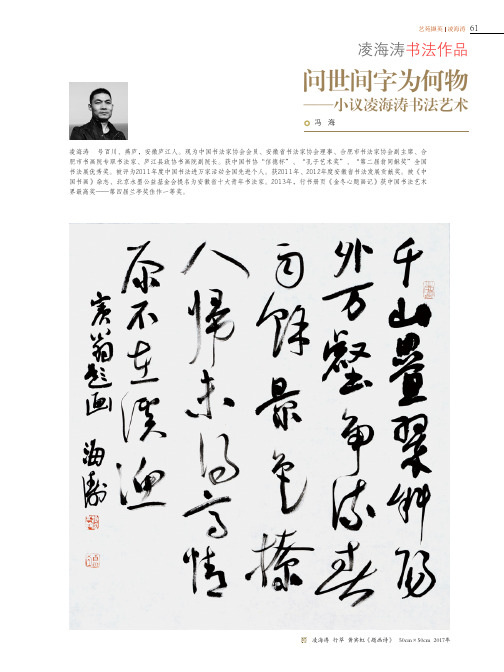 艺苑撷英 | 凌海涛 61
凌海涛书法作品
问世间字为何物
——小议凌海涛书法艺术
冯 海
凌海涛 号百川、燕庐,安徽庐江人。现为中国书法家协会会员、安徽省书法家协会理事、合肥市书法家协会副主席、合
肥市书画院专职书法家、庐江县政协书画院副院长。获中国书协“信德杯”、“孔子艺术奖”、“第二届 奖”全国
书法展优秀奖。被评为2011年度中国书法进万家活动全国先进个人。获2011年、2012年度安徽省书法发展贡献奖。被《中
国书画》杂志、北京水墨公益基金会提名为安徽省十大青年书法家。2013年,行书册页《金冬心题画记》获中国书法艺术
界最高奖——第四届兰亭奖佳作一等奖。
千山疊翠斜陽
外万壑争流春
雨餘景色撩
人歸未得高情
原不在溪漁
賓翁題画 海涛
凌海涛 行草 黄宾虹《题画诗》 50cm×50cm 2017年